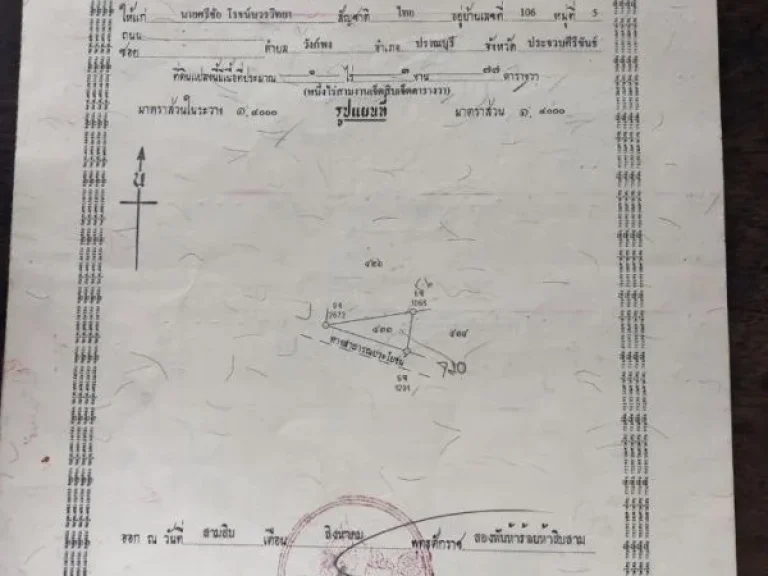 ให้แก่ นายศรีชัย โรจน์บวรวิทยา สัญชาติ ไทย อยู่บ้านเลขที่ 106 หมู่ที่ 5
ถนน
ซอย ตำบล วังก์พง อำเภอ ปราณบุรี จังหวัด ประจวบคีรีขันธ์
ที่ดินแปลงนี้มีเนื้อที่ประมาณ ๑ ไร่ ๓ งาน ๗๗ ตารางวา
(หนึ่งไร่สามงานเจ็ดสิบเจ็ดตารางวา)
มาตราส่วนในระวาง ๑:๔๐๐๐ รูปแผนที่ มาตราส่วน ๑:๔๐๐๐
น
๔๒๖
2672
1065
๔๓๓
๔๓๔
ทางสาธารณประโยชน์
1231
ออก ณ วันที่ สามสิบ เดือน สิงหาคม พุทธศักราช สองพันห้าร้อยห้าสิบสาม